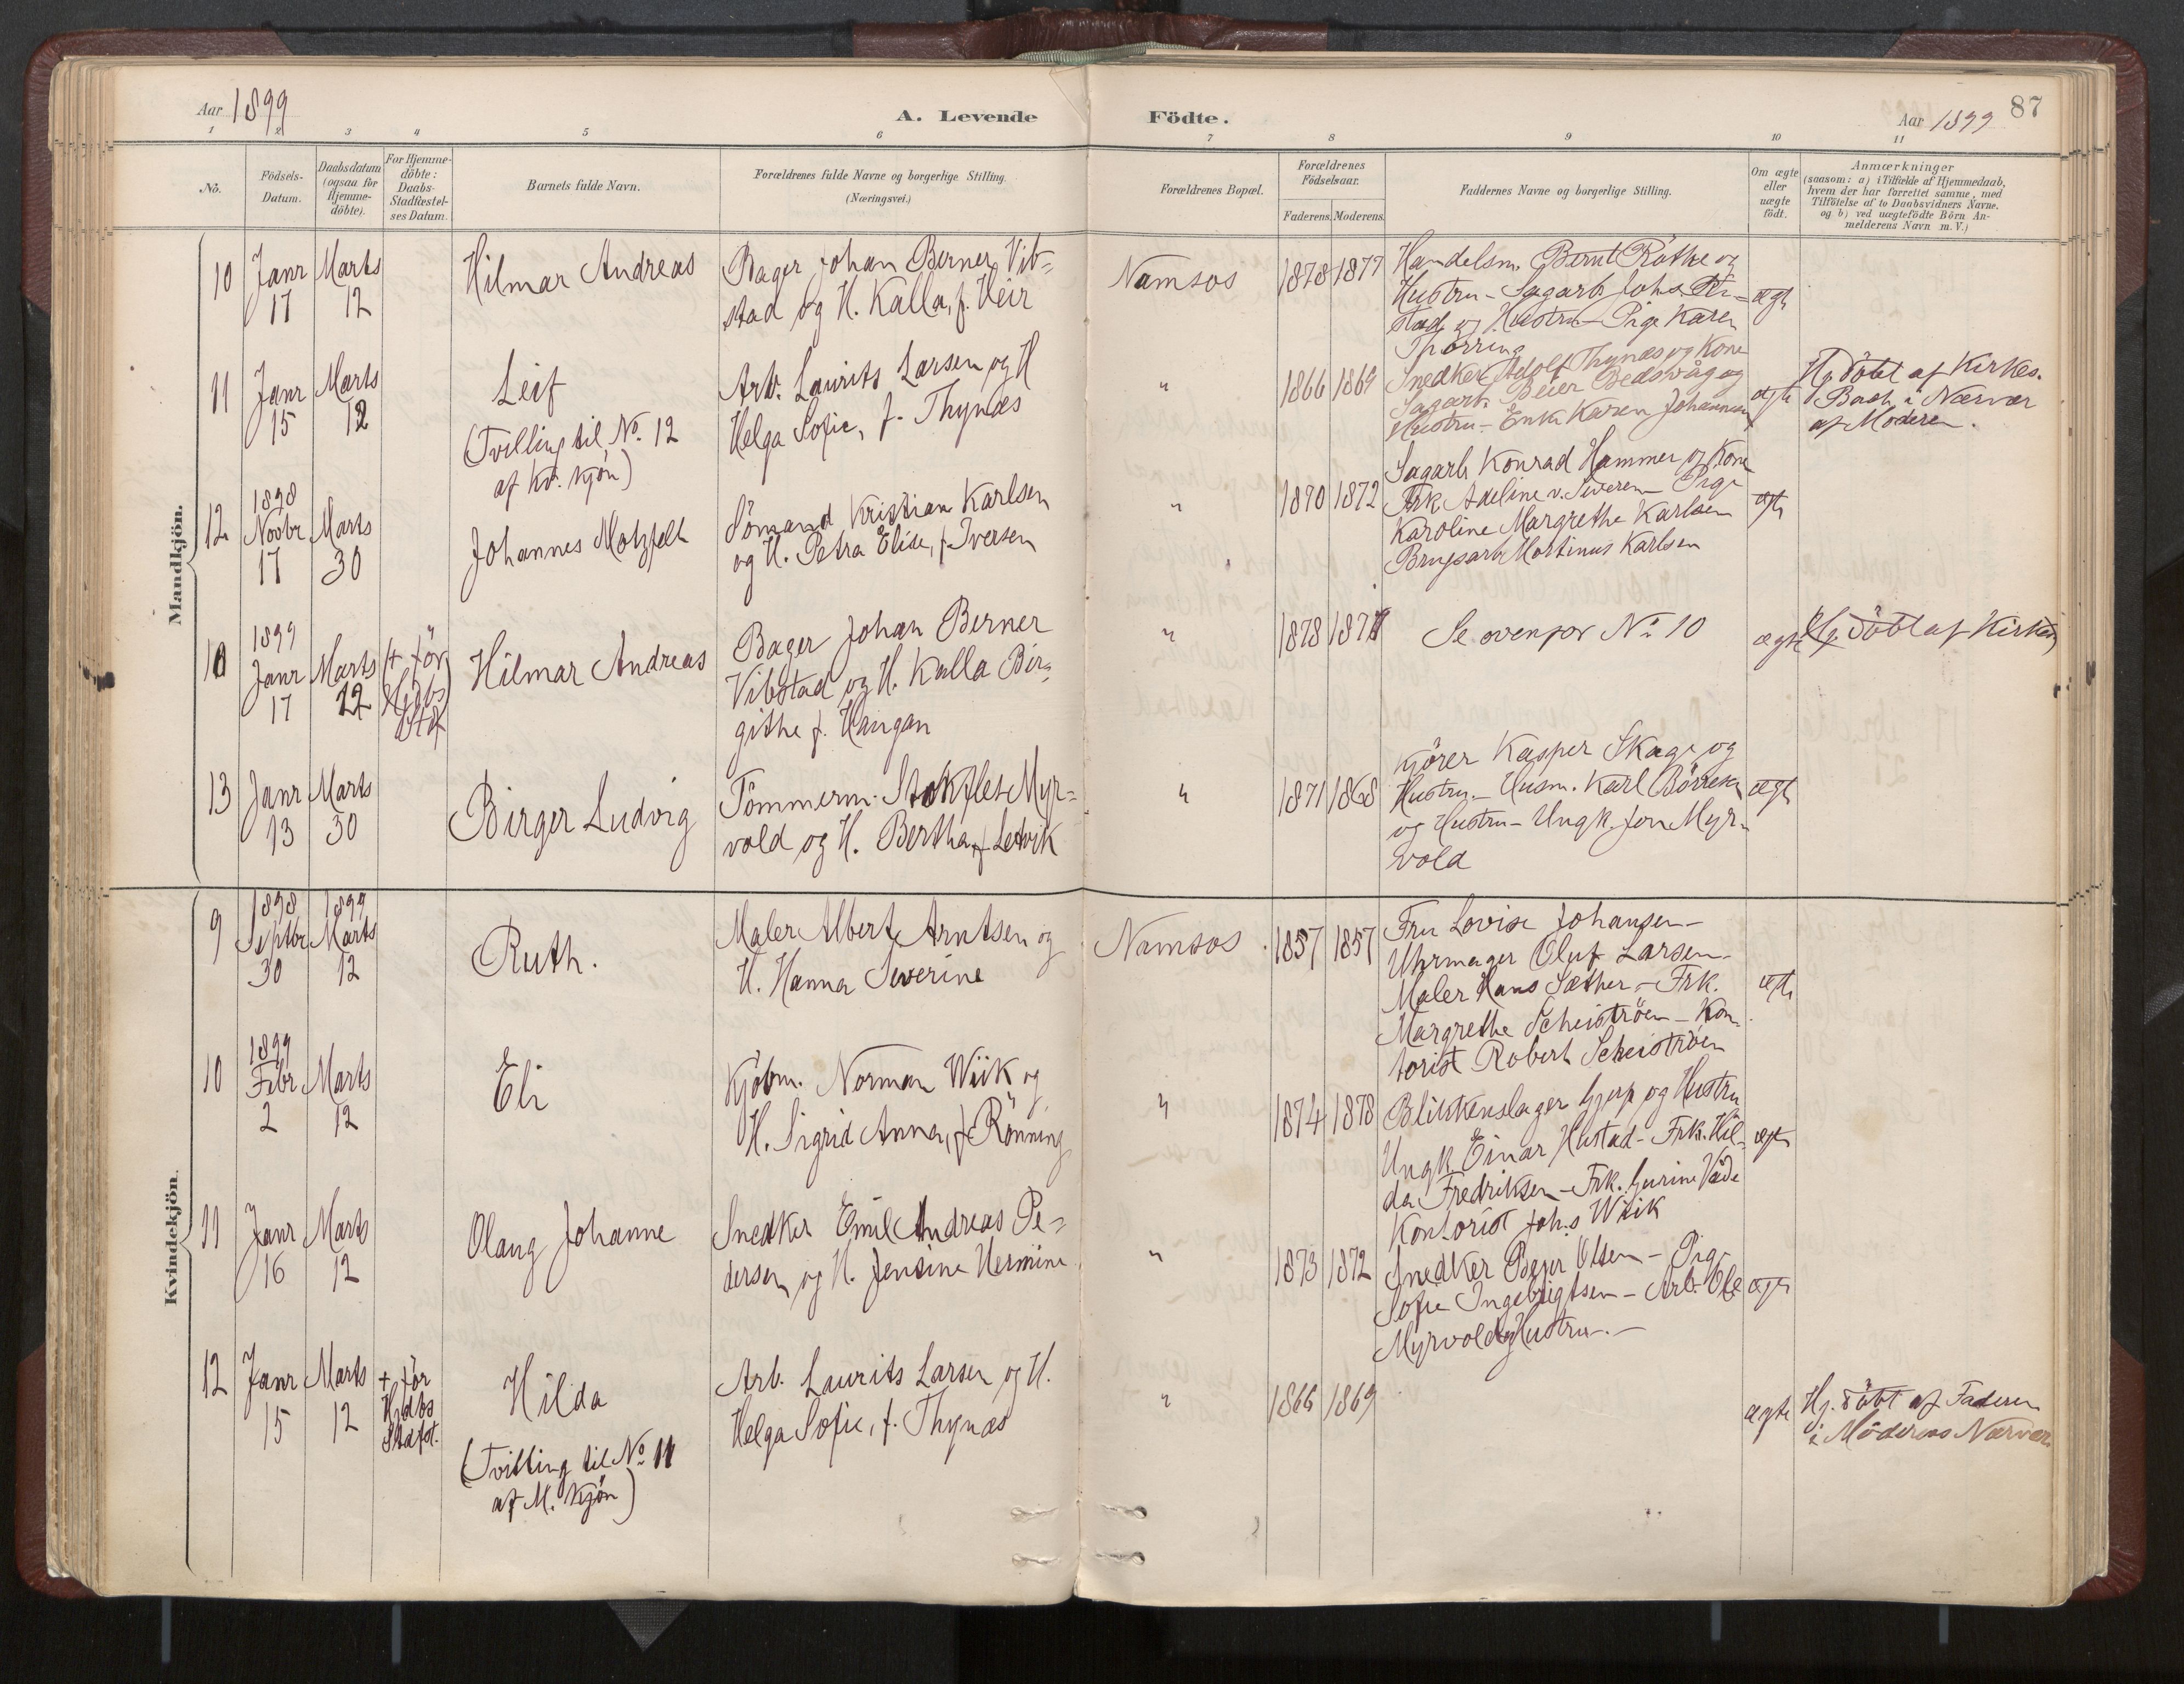 Aar 1899
A. Levende Födte.
Aar 1899
87
1 2 3 4 5 6 7 8 9 10 11
No.
Födsels-
Datum.
Daabsdatum
(ogsaa for
Hjemme-
döbte).
For Hjemme-
döbte:
Daabs-
Stadfæstel-
ses Datum.
Barnets fulde Navn.
Forældrenes fulde Navne og borgerlige Stilling.
(Næringsvei.)
Forældrenes Bopæl.
Forældrenes
Födselsaar.
Faderens. Moderens.
Faddernes Navne og borgerlige Stilling.
Om ægte
eller
uægte
födt.
Anmærkninger
(saasom: a) i Tilfælde af Hjemmedaab,
hvem der har forrettet samme, med
Tilföielse af to Daabsvidners Navne.
og b) ved uægtefödte Börn An-
melderens Navn m. V.)
Mandkjön.
10
Janr
17
Marts
12
Hilmar Andreas
Bager Johan Berner Vib=
stad og H. Kalla, f. Heir
Namsos
1878
1877
Handelsm. Bernt Röthe og
Hustru - Sagarb Johs.
stad og Hustru - Pige Karen
Spörring
ægte
11
Janr
15
Marts
12
Leif
(Tvilling til No. 12
af Kv. kjön)
Arb. Laurits Larsen og H
Helga Sofie, f. Thynæs
"
1866
1869
Snedker Adolf Thynæs og Kone
Sagarb. Beier Bedsvåg og
Hustru - Enke Karen Johannesen
ægte
Hj. döbt af Kirkes.
Bach i Nærvær
af Moderen.
12
1898
Novbr
17
Marts
30
Johannes Motzfelt
Sömand Kristian Karlsen
og H. Petra Elise, f. Iversen
"
1870
1872
Sagarb Konrad Hammer og Kone
Frk Adeline v. Severen - Pige
Karoline Margrethe Karlsen
Brugsarb Martinus Karlsen
ægte
10
1899
Janr
17
Marts
12
+ för
Hjdbs
Stdf
Hilmar Andreas
Bager Johan Berner
Vibstad og H. Kalla Bir=
githe f. Haugan
"
1878
1877
Se ovenfor No 10
ægte
Hj. döbt af Kirkes
13
Janr
13
Marts
30
Birger Ludvig
Tömmerm. Stokflet Myr=
vold og H. Bertha, f. Ledvik
"
1871
1868
Kjörer Kasper Skage og
Hustru. - Husm. Karl Börresen
og Hustru - Ungk. Jon Myr-
vold
ægte
Kvindekjön.
9
1898
Septbr
30
1899
Marts
12
Ruth.
Maler Albert Arntsen og
H. Hanna Severine
Namsos
1857
1857
Fru Lovise Johansen -
Uhrmager Oluf Larsen -
Maler Hans Sæther - Frk.
Margrethe Scheiströen - Kon-
torist Robert Scheiströen
ægte
10
1899
Febr
2
Marts
12
Eli
Kjöbm. Norman Wiik og
H. Sigrid Anna, f. Rönning
"
1874
1878
Blikkenslager Gjep og Hustru
Ungk Einar Hustad - Frk. Hil-
da Fredriksen - Frk. Gurine Vade
Kontorist Johs Wiik
ægte
11
Janr
16
Marts
12
Olaug Johanne
Snedker Emil Andreas Pe=
dersen og H. Jensine Hermine
"
1873
1872
Snedker Peder Olsen - Pige
Sofie Ingebrigtsen - Arb. Ole
Myrvold og Hustru. -
ægte
12
Janr
15
Marts
12
+ för
Hjdbs
Stadft.
Hilda
(Tvilling til No 11
af M. kjön)
Arb. Laurits Larsen og H.
Helga Sofie, f. Thynæs
"
1866
1869
ægte
Hj. döbt af Faderen
i Moderens Nærvær